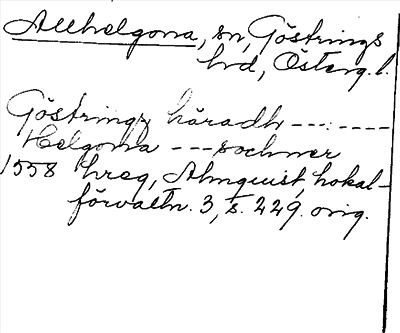 Allhelgona, sn, Göstrings
hrd, Österg. l.
Göstringz häradh --------
Helgona --- sochner
1558 hreg, Almquist, Lokal-
förvaltn. 3, s. 229. orig.